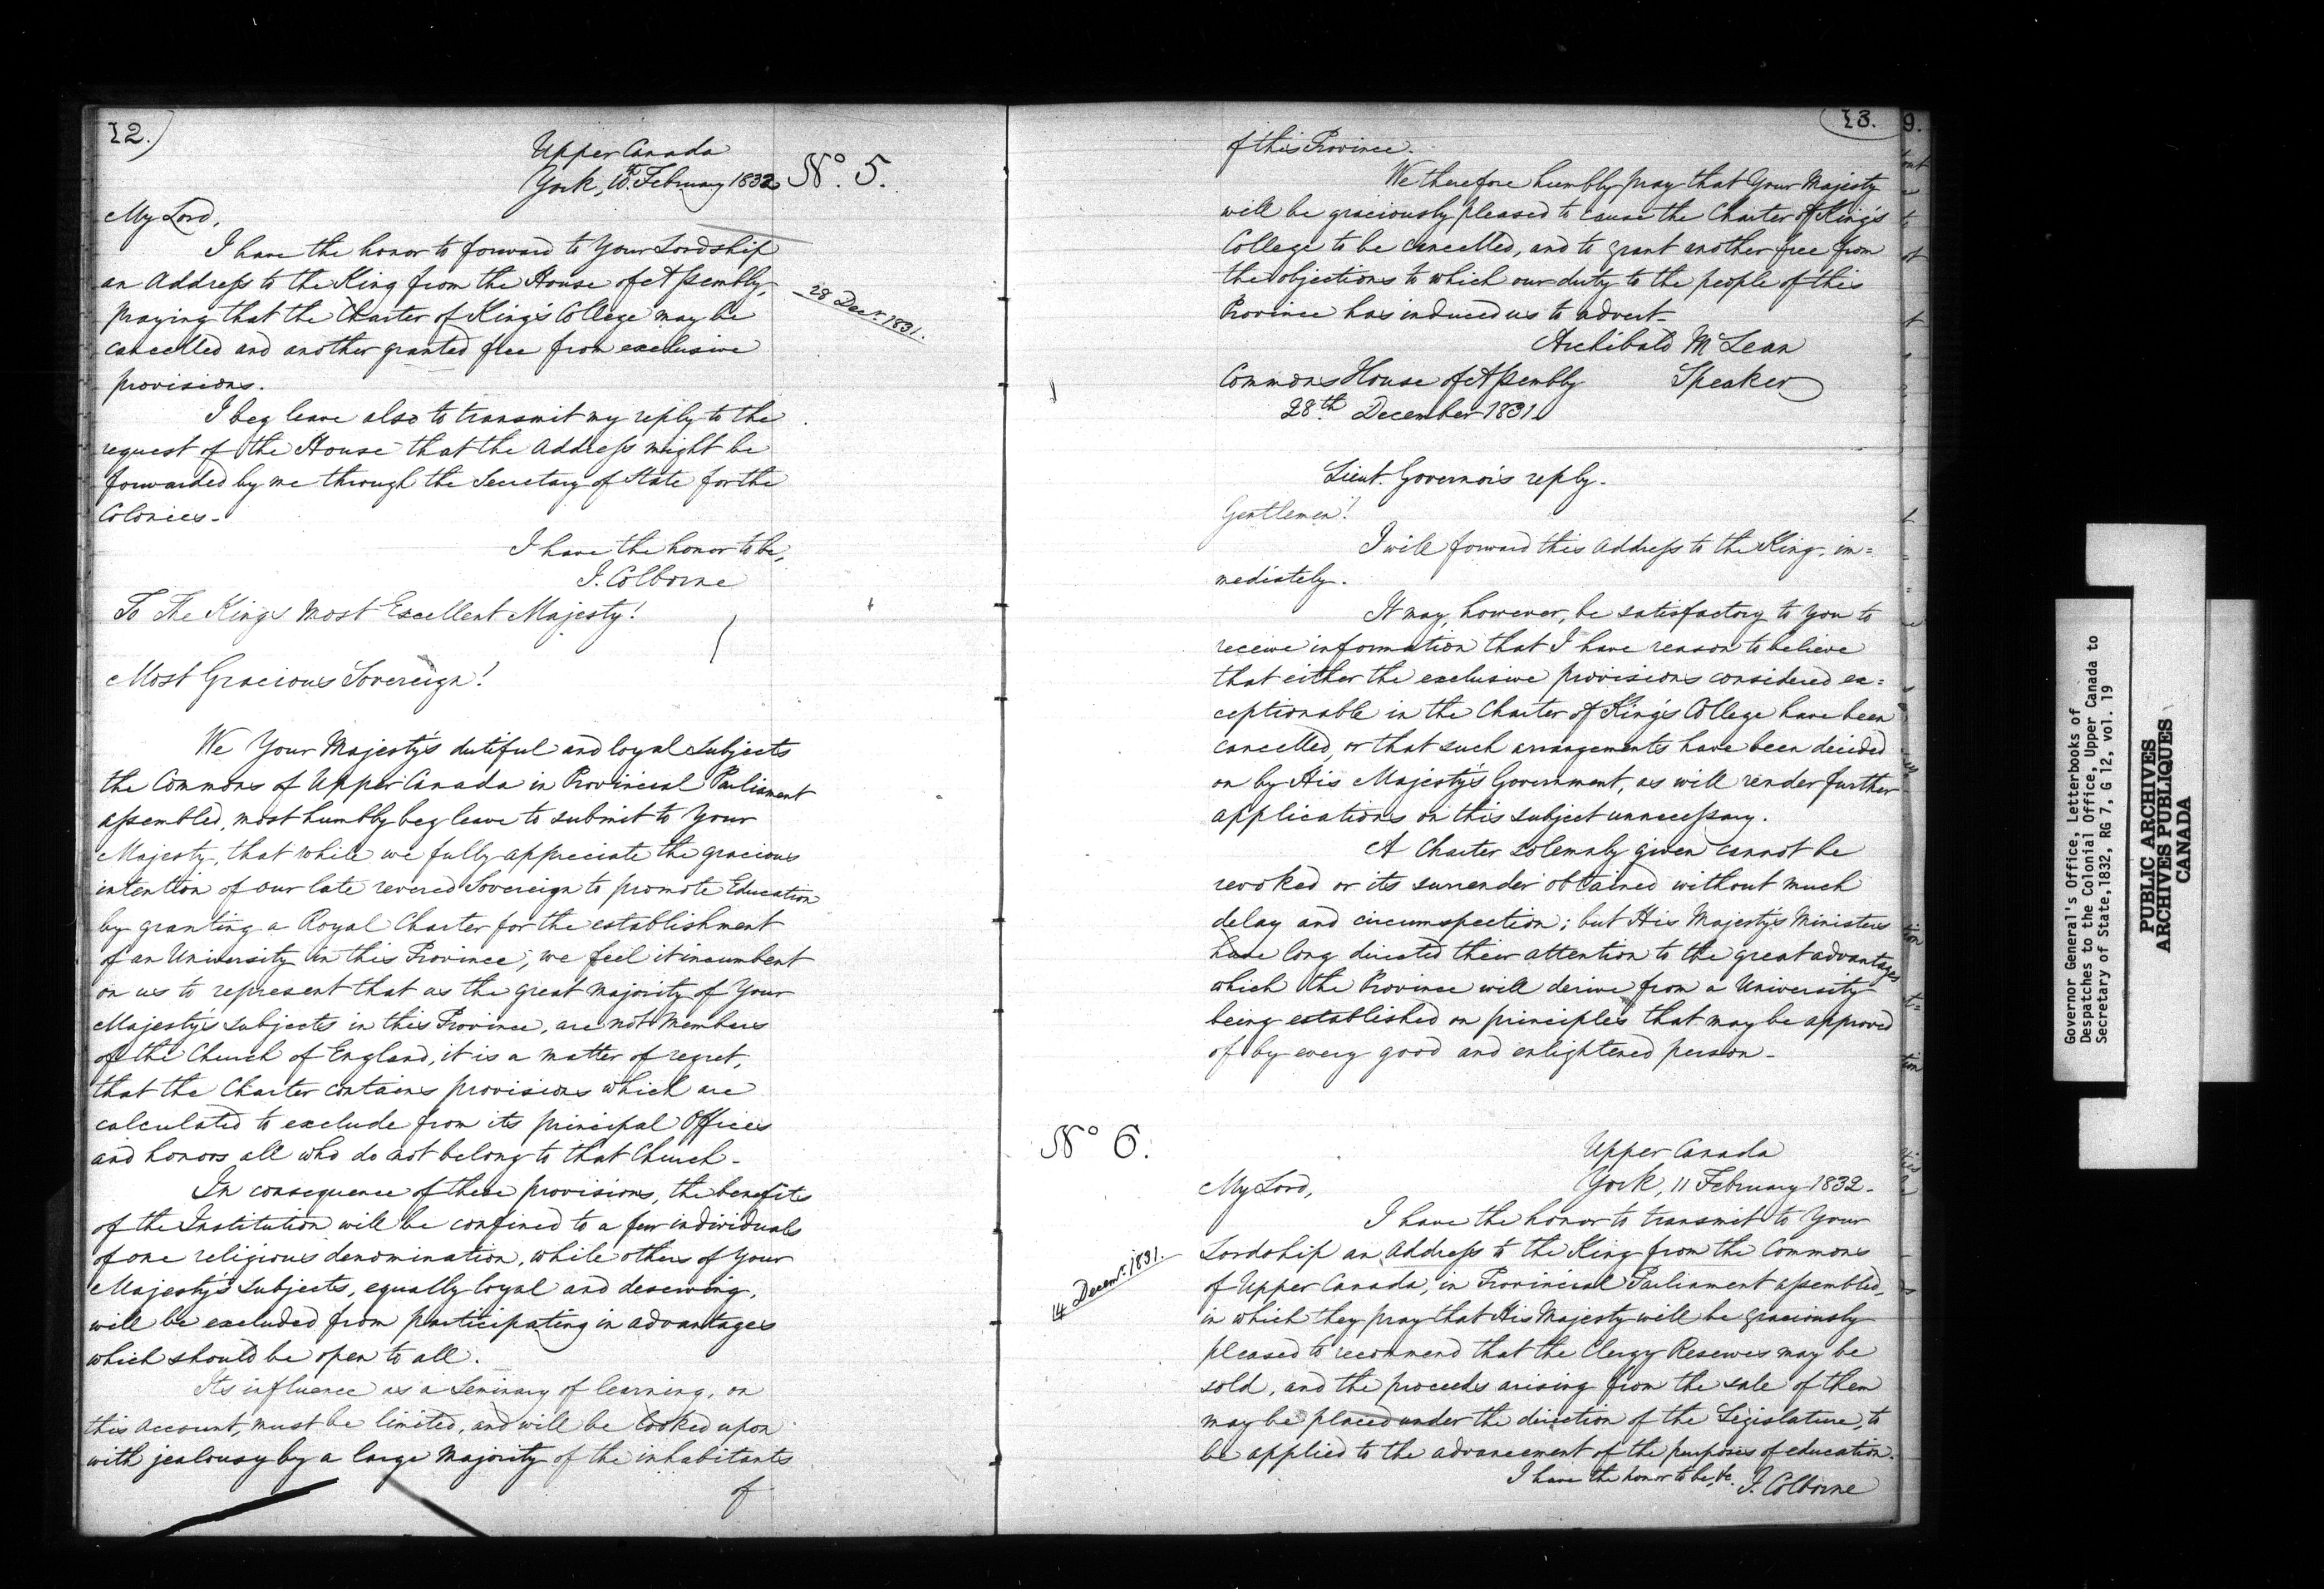 12.
Upper Canada
York, 10th February 1832
No. 5.
My Lord,
I have the honor to forward to Your Lordship
an Address to the King from the House of Assembly,
28 Decr. 1831.
praying that the Charter of King's College may be
cancelled and another granted free from exclusive
provisions.
I beg leave also to transmit my reply to the
request of the House that the Address might be
forwarded by me through the Secretary of State for the
Colonies-
I have the honor to be,
J. Colborne
To The Kings Most Excellent Majesty!
Most Gracious Sovereign!
We Your Majesty's dutiful and loyal Subjects
the Commons of Upper Canada in Provincial Parliament
assembled, most humbly beg leave to submit to Your
Majesty, that while we fully appreciate the gracious
intention of our late revered Sovereign to promote Education
by granting a Royal Charter for the establishment
of an University in this Province, we feel it incumbent
on us to represent that as the great majority of Your
Majesty's subjects in this Province, are not Members
of the Church of England, it is a matter of regret,
that the Charter contains provisions which are
calculated to exclude from its principal Offices
and honors all who do not belong to that Church-
In consequence of these provisions, the benefits
of the Institution will be confined to a few individuals
of one religious denomination, while others of Your
Majesty's Subjects, equally loyal and deserving,
will be excluded from participating in advantages
which should be open to all.
Its influence as a Seminary of learning, on
this account, must be limited, and will be looked upon
with jealousy by a large Majority of the inhabitants
of
13.
of this Province.
We therefore humbly pray that Your Majesty
will be graciously pleased to cause the Charter of King's
College to be cancelled, and to grant another free from
the objections to which our duty to the people of this
Province has induced us to advert-
Archibald McLean
Commons House of Assembly Speaker
28th December 1831.
Lieut. Governor's reply.
Gentlemen!
I will forward this Address to the King, im=
mediately.
It may, however, be satisfactory to You to
receive information that I have reason to believe
that either the exclusive provisions considered ex=
ceptionable in the Charter of King's College have been
cancelled, or that such arrangements have been decided
on by His Majesty's Government, as will render further
applications on this subject unnecessary.
A Charter solemnly given cannot be
revoked or its surrender obtained without much
delay and circumspection; but His Majesty's Ministers
have long directed their attention to the great advantages
which the Province will derive from a University
being established on principles that may be approved
of by every good and enlightened person-
No 6.
Upper Canada
York, 11 February 1832-
My Lord,
I have the honor to transmit to Your
Lordship an Address to the King from the Commons
14 Decemr. 1831.
of Upper Canada, in Provincial Parliament assembled,
in which they pray that His Majesty will be graciously
pleased to recommend that the Clergy Reserves may be
sold, and the proceeds arising from the sale of them
may be placed under the direction of the Legislature, to
be applied to the advancement of the purposes of education.
I have the honor to be, &c.
J. Colborne
9.
Governor General's Office, Letterbooks of
Despatches to the Colonial Office, Upper Canada to
Secretary of State, 1832, RG 7, G 12, vol. 19
PUBLIC ARCHIVES
ARCHIVES PUBLIQUES
CANADA